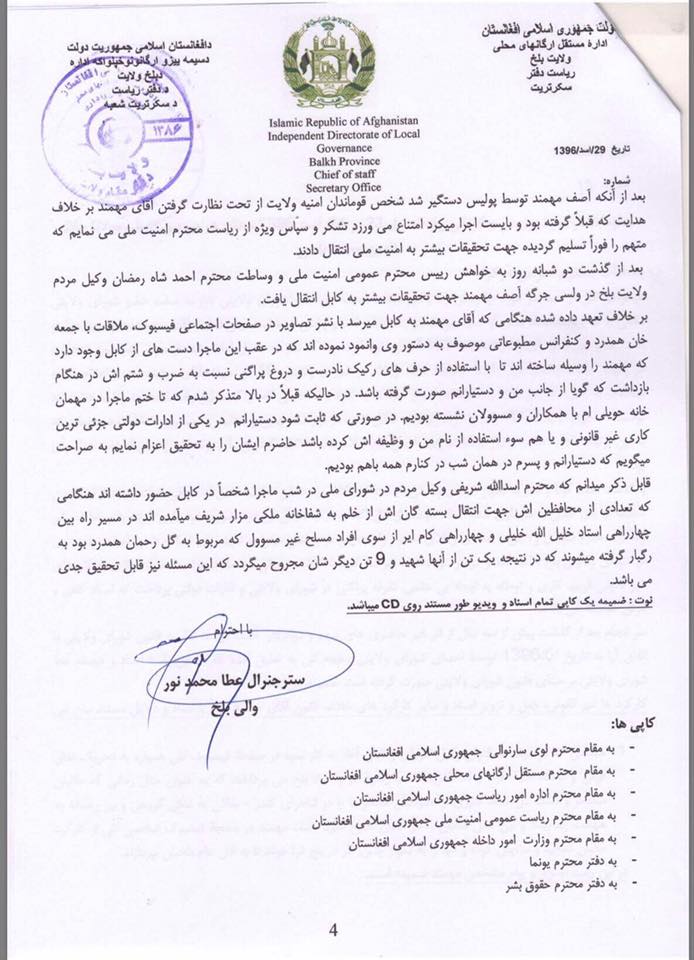 دولت جمهوری اسلامی افغانستان
ادارۀ مستقل ارگانهای محلی
ولایت بلخ
ریاست دفتر
سکرتریت
دافغانستان اسلامی جمهوریت دولت
دسیمه ییزو ارگانونوخپلواکه اداره
دبلخ ولایت
د دفتر ریاست
د سکرتریت شعبه
۱۳۸۶
Islamic Republic of Afghanistan
Independent Directorate of Local
Governance
Balkh Province
Chief of staff
Secretary Office
تاریخ 29/اسد/1396
شماره:
بعد از آنکه آصف مهمند توسط پولیس دستگیر شد شخص قوماندان امنیه ولایت از تحت نظارت گرفتن آقای مهمند بر خلاف
هدایت که قبلاً گرفته بود و بایست اجرا میکرد امتناع می ورزد تشکر و سپاس ویژه از ریاست محترم امنیت ملی می نمایم که
متهم را فوراً تسلیم گردیده جهت تحقیقات بیشتر به امنیت ملی انتقال دادند.
بعد از گذشت دو شبانه روز به خواهش رییس محترم عمومی امنیت ملی و وساطت محترم احمد شاه رمضان وکیل مردم
ولایت بلخ در ولسی جرگه آصف مهمند جهت تحقیقات بیشتر به کابل انتقال یافت.
بر خلاف تعهد داده شده هنگامی که آقای مهمند به کابل میرسد با نشر تصاویر در صفحات اجتماعی فیسبوک، ملاقات با جمعه
خان همدرد و کنفرانس مطبوعاتی موصوف به دستور وی وانمود نموده اند که در عقب این ماجرا دست های از کابل وجود دارد
که مهمند را وسیله ساخته اند تا با استفاده از حرف های رکیک نادرست و دروغ پراگنی نسبت به ضرب و شتم اش در هنگام
بازداشت که گویا از جانب من و دستیارانم صورت گرفته باشد. در حالیکه قبلاً در بالا متذکر شدم که تا ختم ماجرا در مهمان
خانه حویلی ام با همکاران و مسوولان نشسته بودیم. در صورتی که ثابت شود دستیارانم در یکی از ادارات دولتی جزئی ترین
کاری غیر قانونی و یا هم سوء استفاده از نام من و وظیفه اش کرده باشد حاضرم ایشان را به تحقیق اعزام نمایم به صراحت
میگویم که دستیارانم و پسرم در همان شب در کنارم همه باهم بودیم.
قابل ذکر میدانم که محترم اسدالله شریفی وکیل مردم در شورای ملی در شب ماجرا شخصاً در کابل حضور داشته اند هنگامی
که تعدادی از محافظین اش جهت انتقال بسته گان اش از خلم به شفاخانه ملکی مزار شریف میآمده اند در مسیر راه بین
چهارراهی استاد خلیل الله خلیلی و چهارراهی کام ایر از سوی افراد مسلح غیر مسوول که مربوط به گل رحمان همدرد بود به
رگبار گرفته میشوند که در نتیجه یک تن از آنها شهید و 9 تن دیگر شان مجروح میگردد که این مسئله نیز قابل تحقیق جدی
می باشد.
نوت : ضمیمه یک کاپی تمام اسناد و ویدیو طور مستند روی CD میباشد.
با احترام
سترجنرال عطا محمد نور
والی بلخ
کاپی ها:
- به مقام محترم لوی سارنوالی جمهوری اسلامی افغانستان
- به مقام محترم مستقل ارگانهای محلی جمهوری اسلامی افغانستان
- به مقام محترم اداره امور ریاست جمهوری اسلامی افغانستان
- به مقام محترم ریاست عمومی امنیت ملی جمهوری اسلامی افغانستان
- به مقام محترم وزارت امور داخله جمهوری اسلامی افغانستان
- به دفتر محترم یونما
- به دفتر محترم حقوق بشر
4